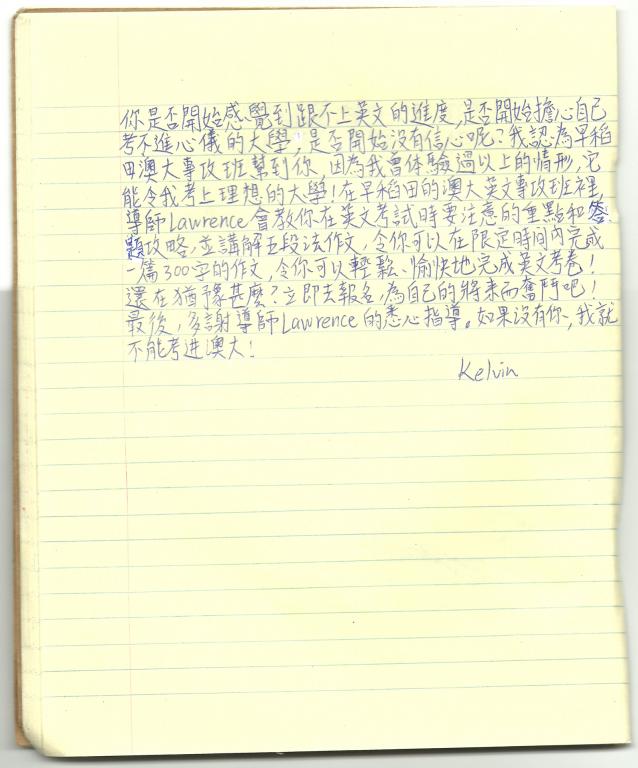 你是否開始感覺到跟不上英文的進度,是否開始擔心自己
考不進心儀的大學,是否開始沒有信心呢?我認為早稻
田澳大專攻班幫到你,因為我曾体驗過以上的情形,它
能令我考上理想的大學!在早稻田的澳大英文專攻班裡,
導師Lawrence會教你在英文考試時要注意的重點和答
題攻略,並講解五段法作文,令你可以在限定時間內完成
一篇300字的作文,令你可以輕鬆、愉快地完成英文考卷!
還在猶豫甚麼?立即去報名,為自己的將來而奮鬥吧!
最後,多謝導師Lawrence的悉心指導。如果沒有你,我就
不能考进澳大!
Kelvin